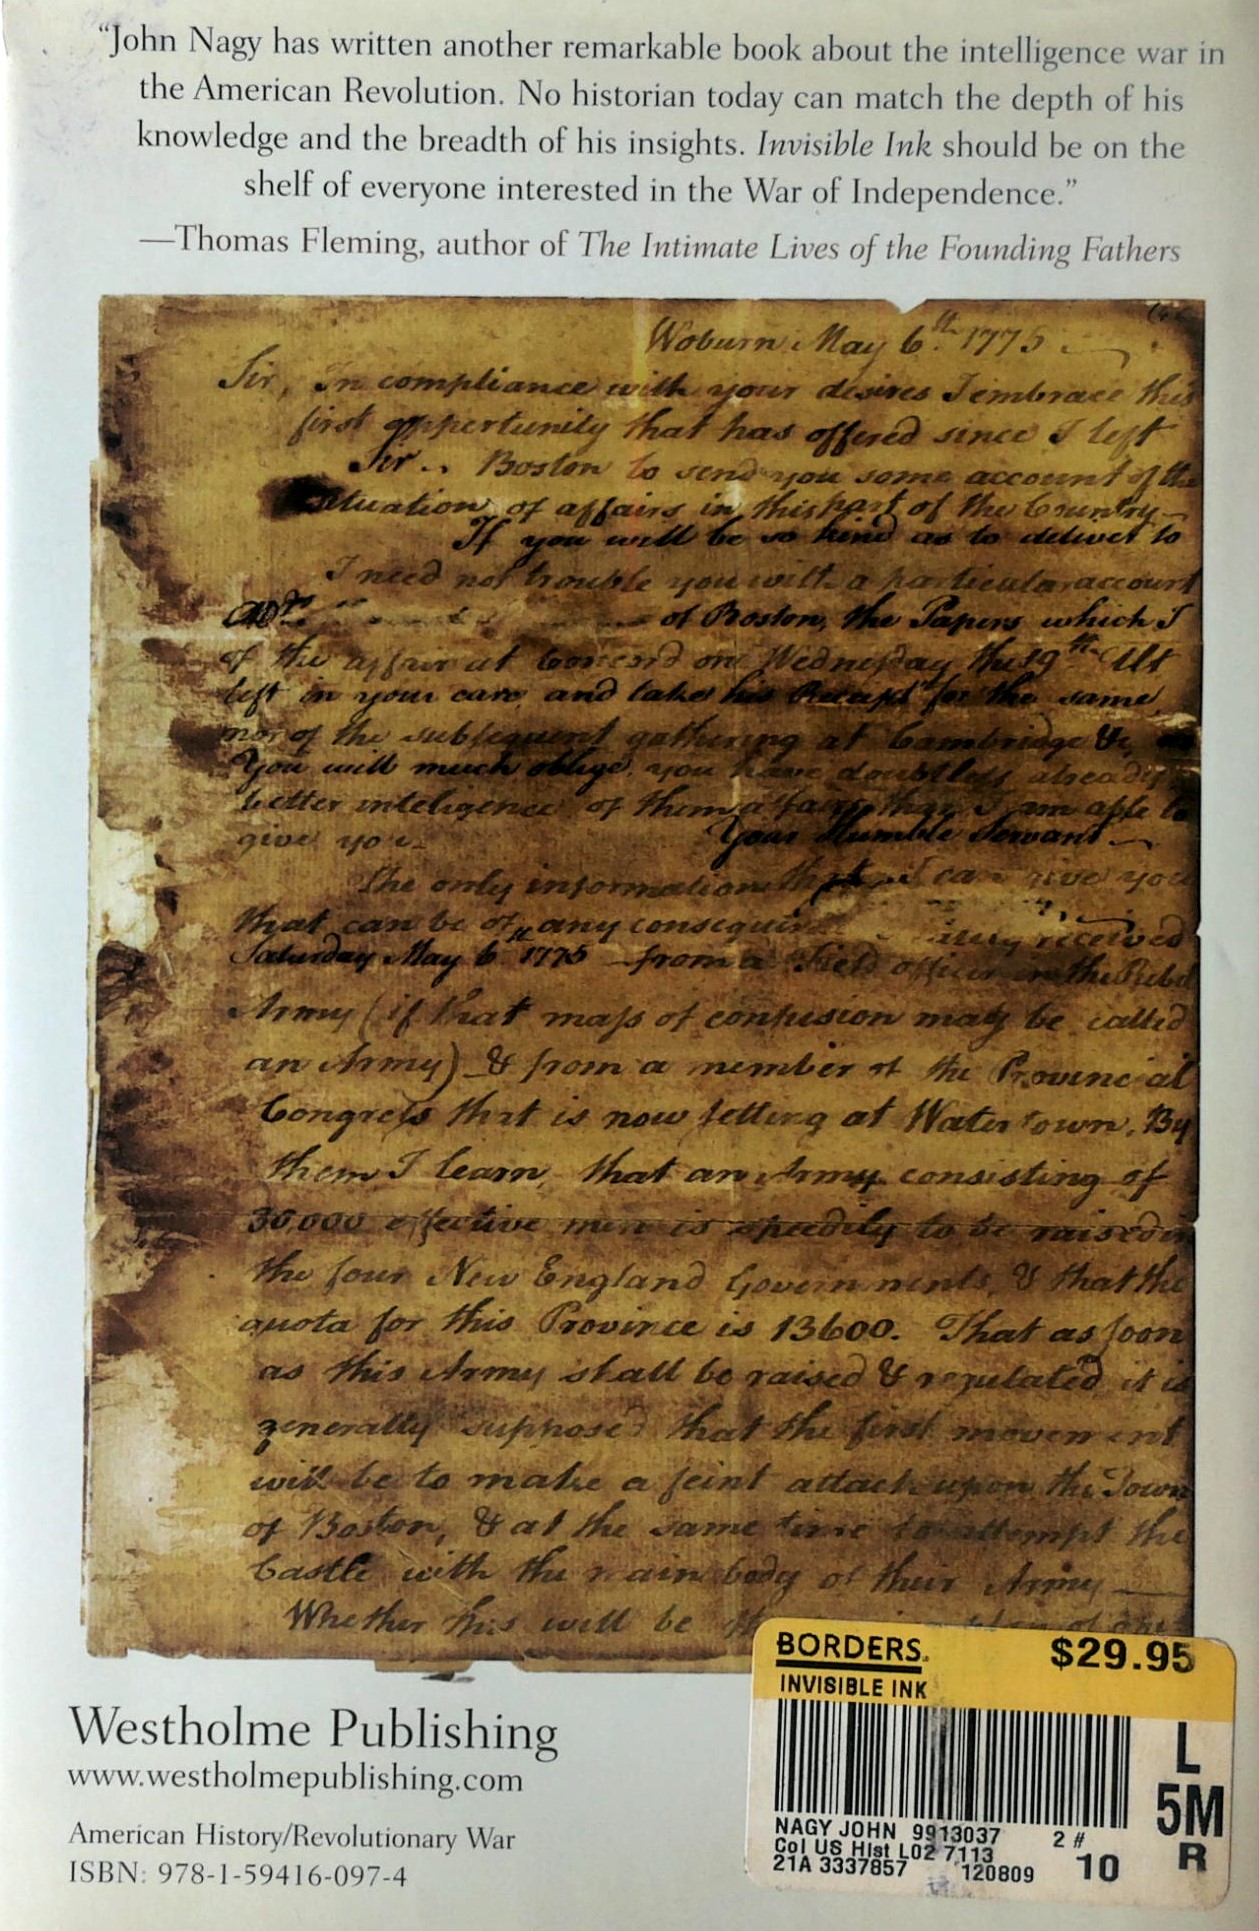 “John Nagy has written another remarkable book about the intelligence war in
the American Revolution. No historian today can match the depth of his
knowledge and the breadth of his insights. Invisible Ink should be on the
shelf of everyone interested in the War of Independence.”
—Thomas Fleming, author of The Intimate Lives of the Founding Fathers
Woburn May 6th 1775
Sir, In compliance with your desires I embrace this
first oppertunity that has offered since I left
Sir. Boston to send you some account of the
situation of affairs in this part of the Country—
If you will be so kind as to deliver to
I need not trouble you with a particular account
of Boston, the Papers which I
of the affair at Concord on Wednesday the 19th Ult
left in your care, and take his Receipt for the same
nor of the subsequent gathering at Cambridge &c
You will much oblige, you have doubtless already
better inteligence of them affairs than I am able to
give you
Your Humble Servant
The only information that I can give you
that can be of any consequ received
Saturday May 6th 1775 from a Field officer in the Rebel
Army (if that mass of confusion may be called
an Army) & from a member of the Provincial
Congress that is now setting at Watertown. By
them I learn, that an Army consisting of
30,000 effective men is speedily to be raised in
the four New England Governments, & that the
quota for this Province is 13600. That as soon
as this Army shall be raised & regulated it is
generally suppose'd that the first movement
will be to make a feint attack upon the Town
of Boston, & at the same time to attempt the
Castle with the main body of their Army—
Whether this will be
BORDERS. $29.95
INVISIBLE INK
L
5M
R
NAGY JOHN 9913037 2 #
Col US Hist L02 7113
21A 3337857 120809 10
Westholme Publishing
www.westholmepublishing.com
American History/Revolutionary War
ISBN: 978-1-59416-097-4